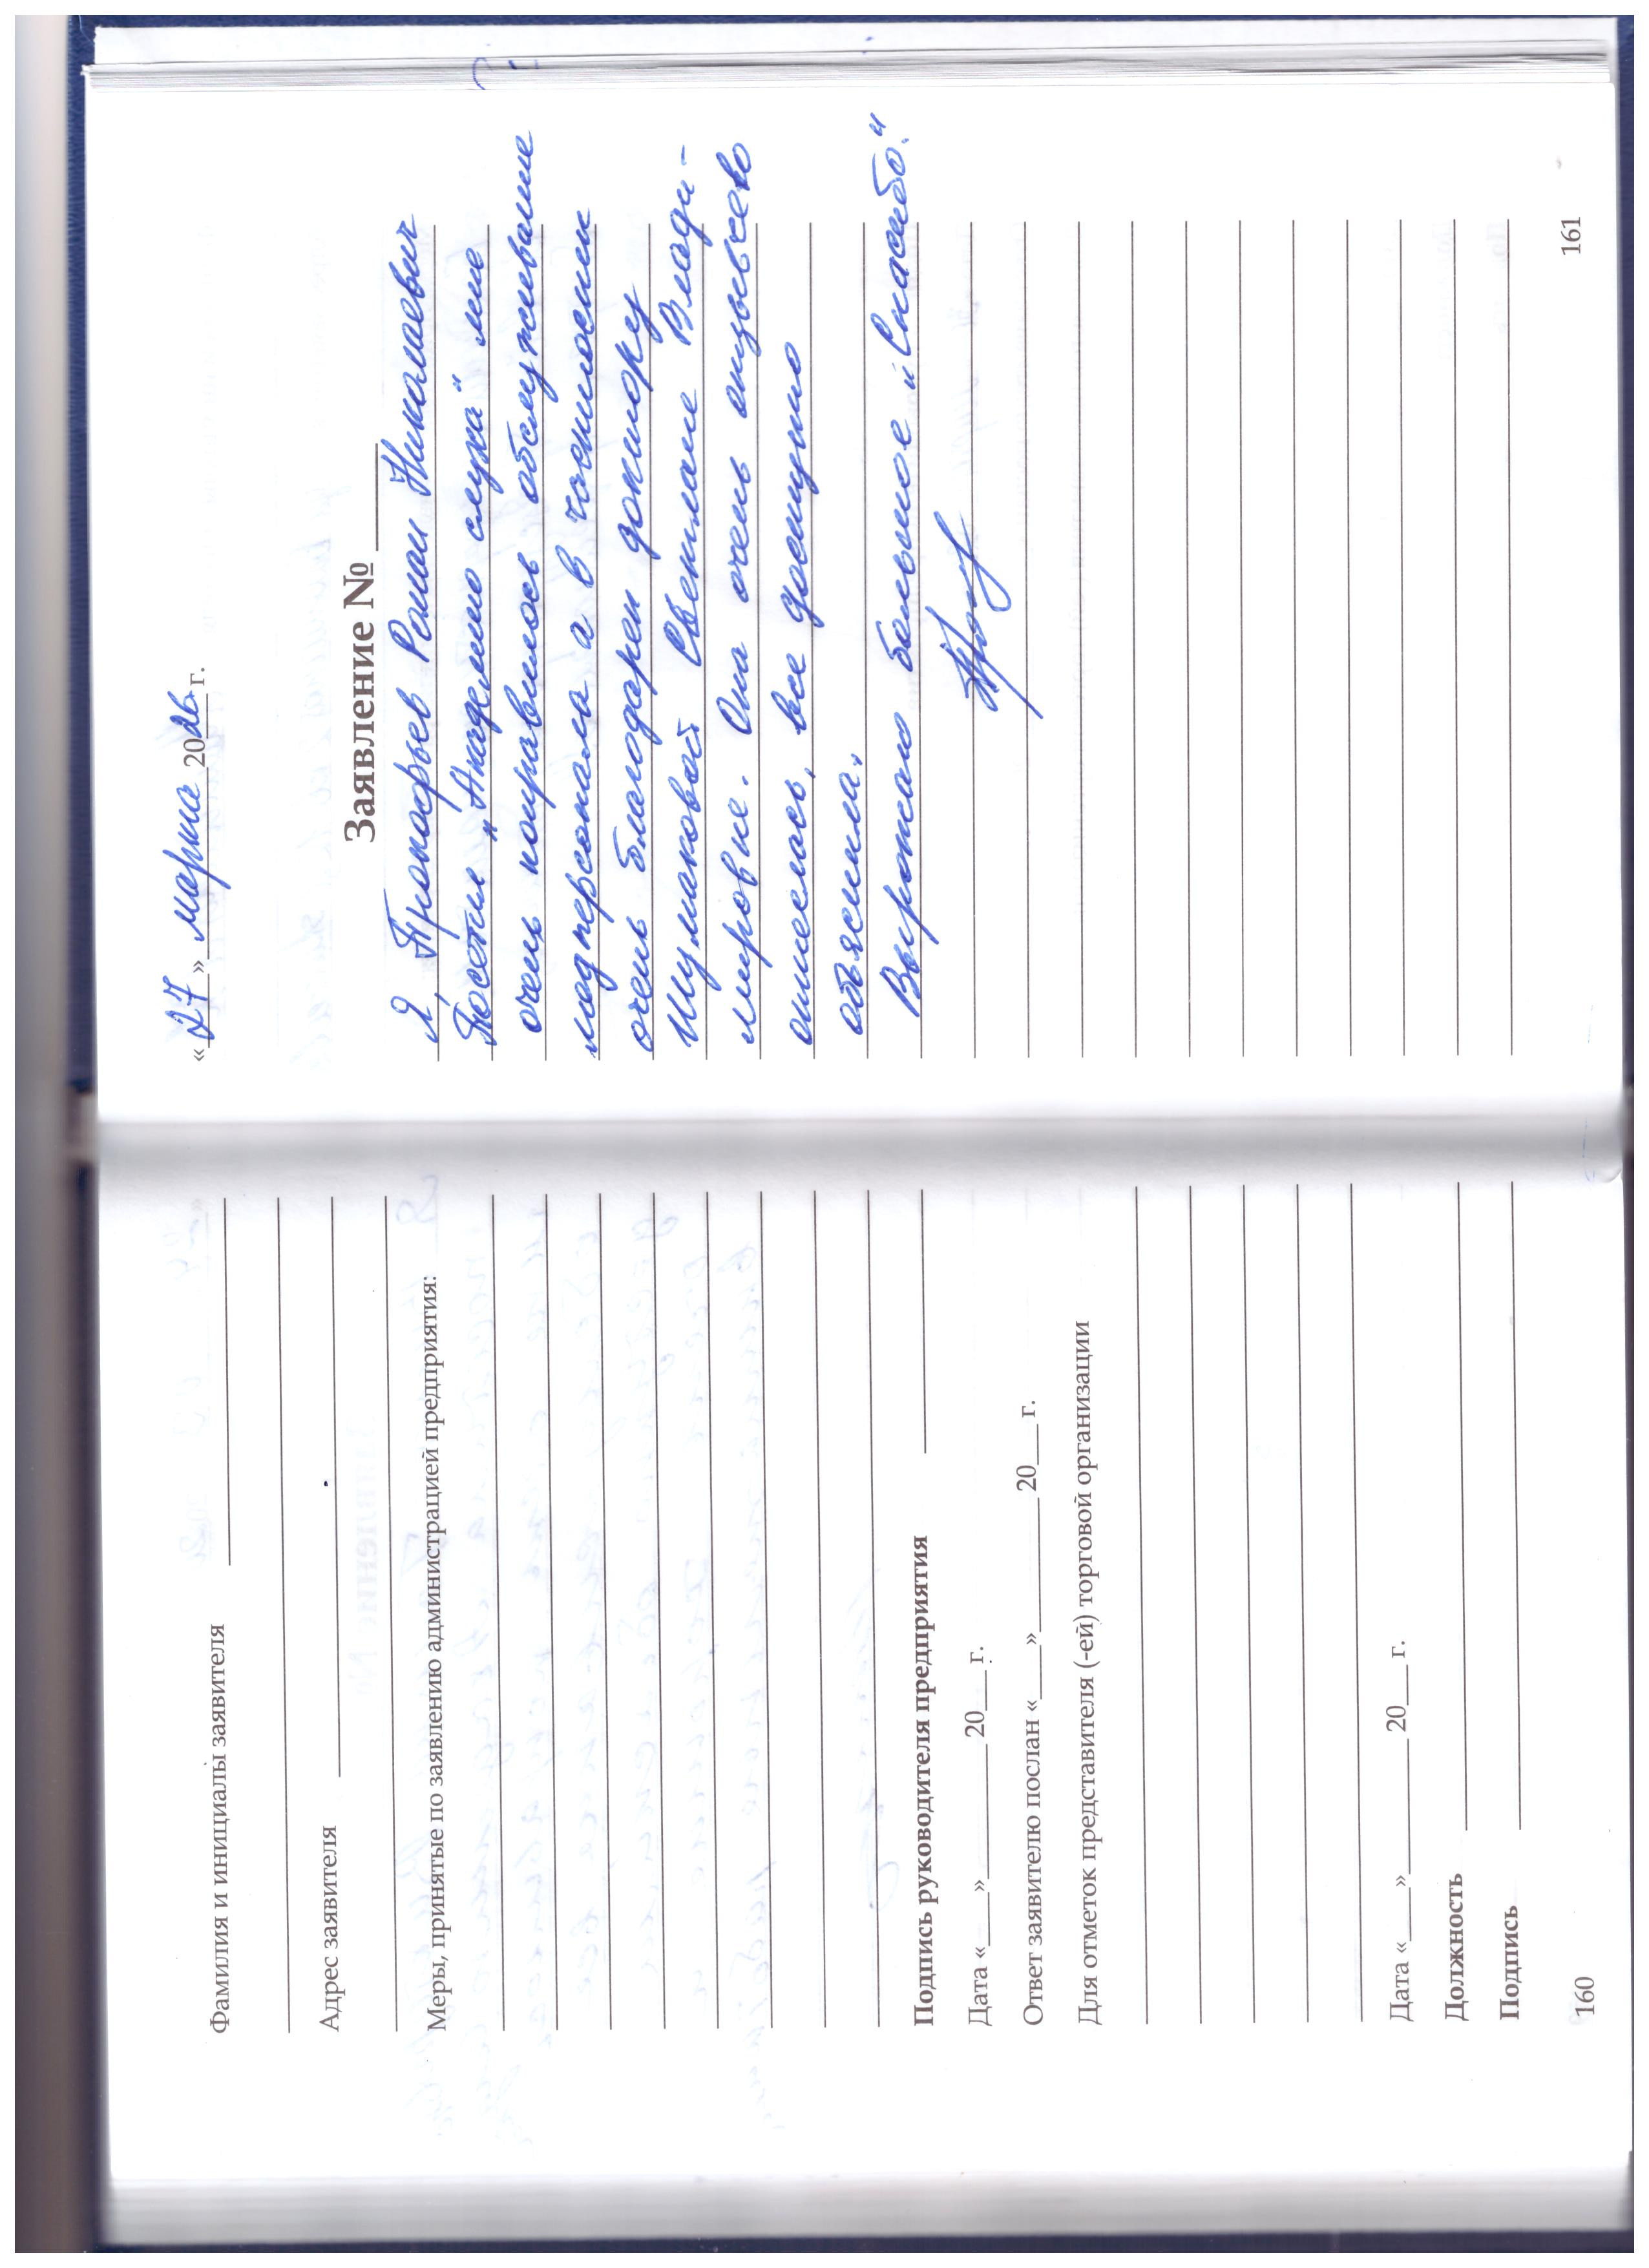 Фамилия и инициалы заявителя
Адрес заявителя
Меры, принятые по заявлению администрацией предприятия:
Подпись руководителя предприятия
Дата «___» ______ 20___ г.
Ответ заявителю послан «___» ______ 20___ г.
Для отметок представителя (-ей) торговой организации
Дата «___» ______ 20___ г.
Должность
Подпись
160
«27» марта 2026 г.
Заявление №
Я, Прокофьев Роман Николаевич
Посетил „Академию слуха" мне
очень понравилось обслуживание
медперсонала а в частности
очень благодарен доктору
Шумаковой Светлане Влади-
мировне. Она очень отзывчево
отнеслась, все доступно
объяснила.
Выражаю большое „Спасибо."
161